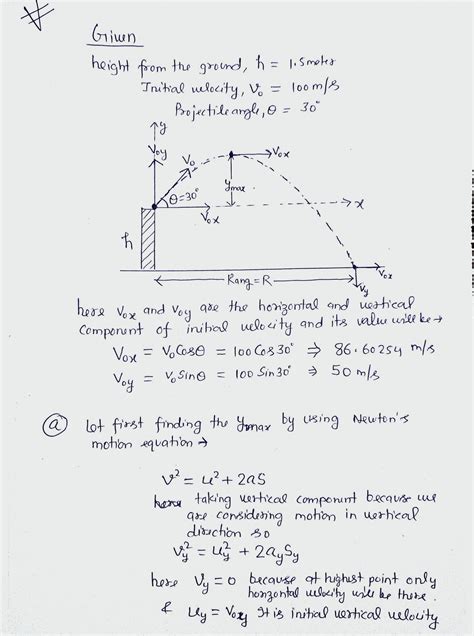 Given
height from the ground, h = 1.5 meter
Initial velocity, V₀ = 100 m/s
Projectile angle, θ = 30°
y
V₀y
V₀
V₀x
ymax
θ=30°
x
V₀x
h
Rang = R
V₀x
Vy
here V₀x and V₀y are the horizontal and vertical
component of initial velocity and its value will be →
V₀x = V₀Cosθ = 100 Cos30° ⇒ 86.60254 m/s
V₀y = V₀Sinθ = 100 Sin30° ⇒ 50 m/s
(a) Let first finding the ymax by using Newton's
motion equation →
v² = u² + 2as
here taking vertical component because we
are considering motion in vertical
direction so
Vy² = uy² + 2aySy
here Vy = 0 because at highest point only
horizontal velocity will be there.
& uy = V₀y It is initial vertical velocity